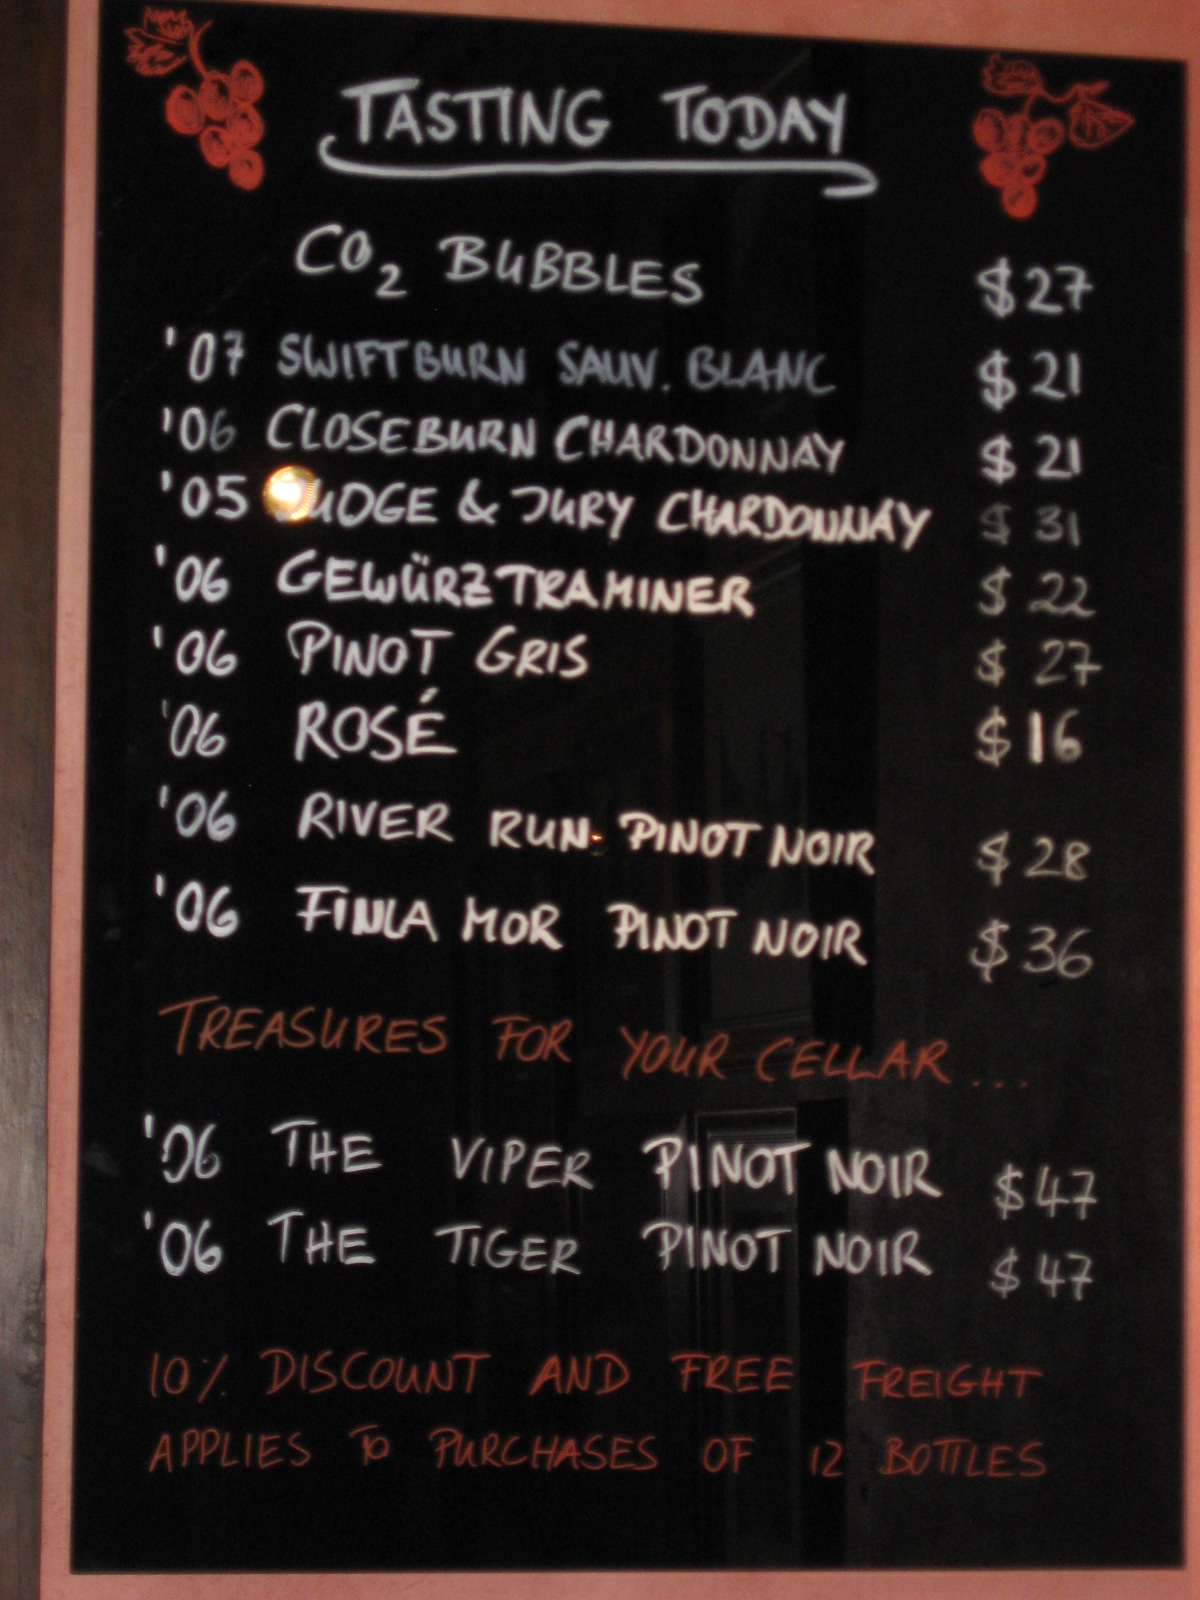 TASTING TODAY
CO₂ BUBBLES $27
'07 SWIFTBURN SAUV. BLANC $21
'06 CLOSEBURN CHARDONNAY $21
'05 JUDGE & JURY CHARDONNAY $31
'06 GEWÜRZTRAMINER $22
'06 PINOT GRIS $27
'06 ROSÉ $16
'06 RIVER RUN PINOT NOIR $28
'06 FINLA MOR PINOT NOIR $36
TREASURES FOR YOUR CELLAR...
'06 THE VIPER PINOT NOIR $47
'06 THE TIGER PINOT NOIR $47
10% DISCOUNT AND FREE FREIGHT
APPLIES TO PURCHASES OF 12 BOTTLES